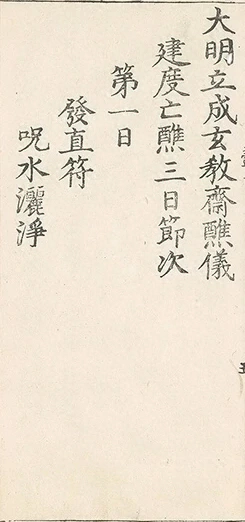 大明立成玄教齋醮儀
建度亡醮三日節次
第一日
發直符
呪水灑淨